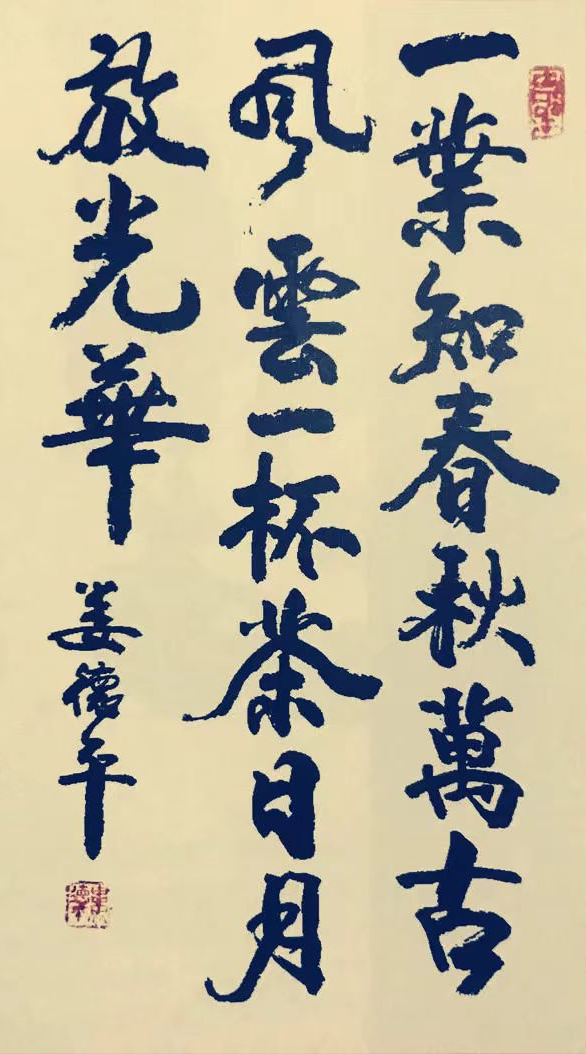 一葉知春秋萬古
風雲一杯茶日月
放光華
姜德平